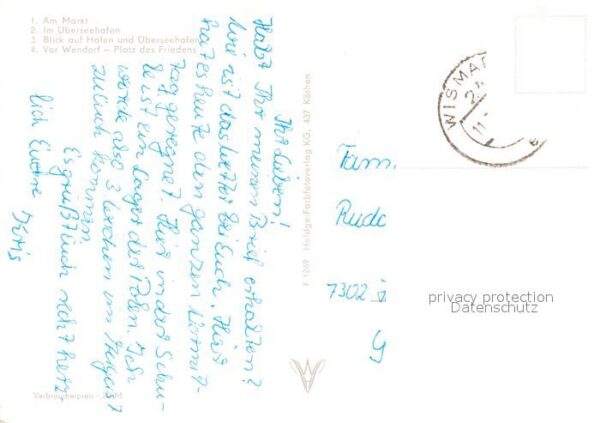 1. Am Markt
2. Im Überseehafen
3. Blick auf Hafen und Überseehafen
4. Vor Wendorf – Platz des Friedens
Ihr Lieben!
Habt Ihr meinen Brief erhalten?
Wie ist das Wetter bei Euch. Hier
hat es heute den ganzen Vormit-
tag geregnet. Hier in der Schu-
le ist ein Lager der Polen. Ich
werde also 3 Wochen im August
zu Euch kommen.
Es grüßt Euch recht herz-
lich Eure
Fam.
Rudo
7302
G
WISMAR
F 1269 Heldge-Farbfotoverlag KG, 437 Köthen
Verbraucherpreis M
privacy protection
Datenschutz